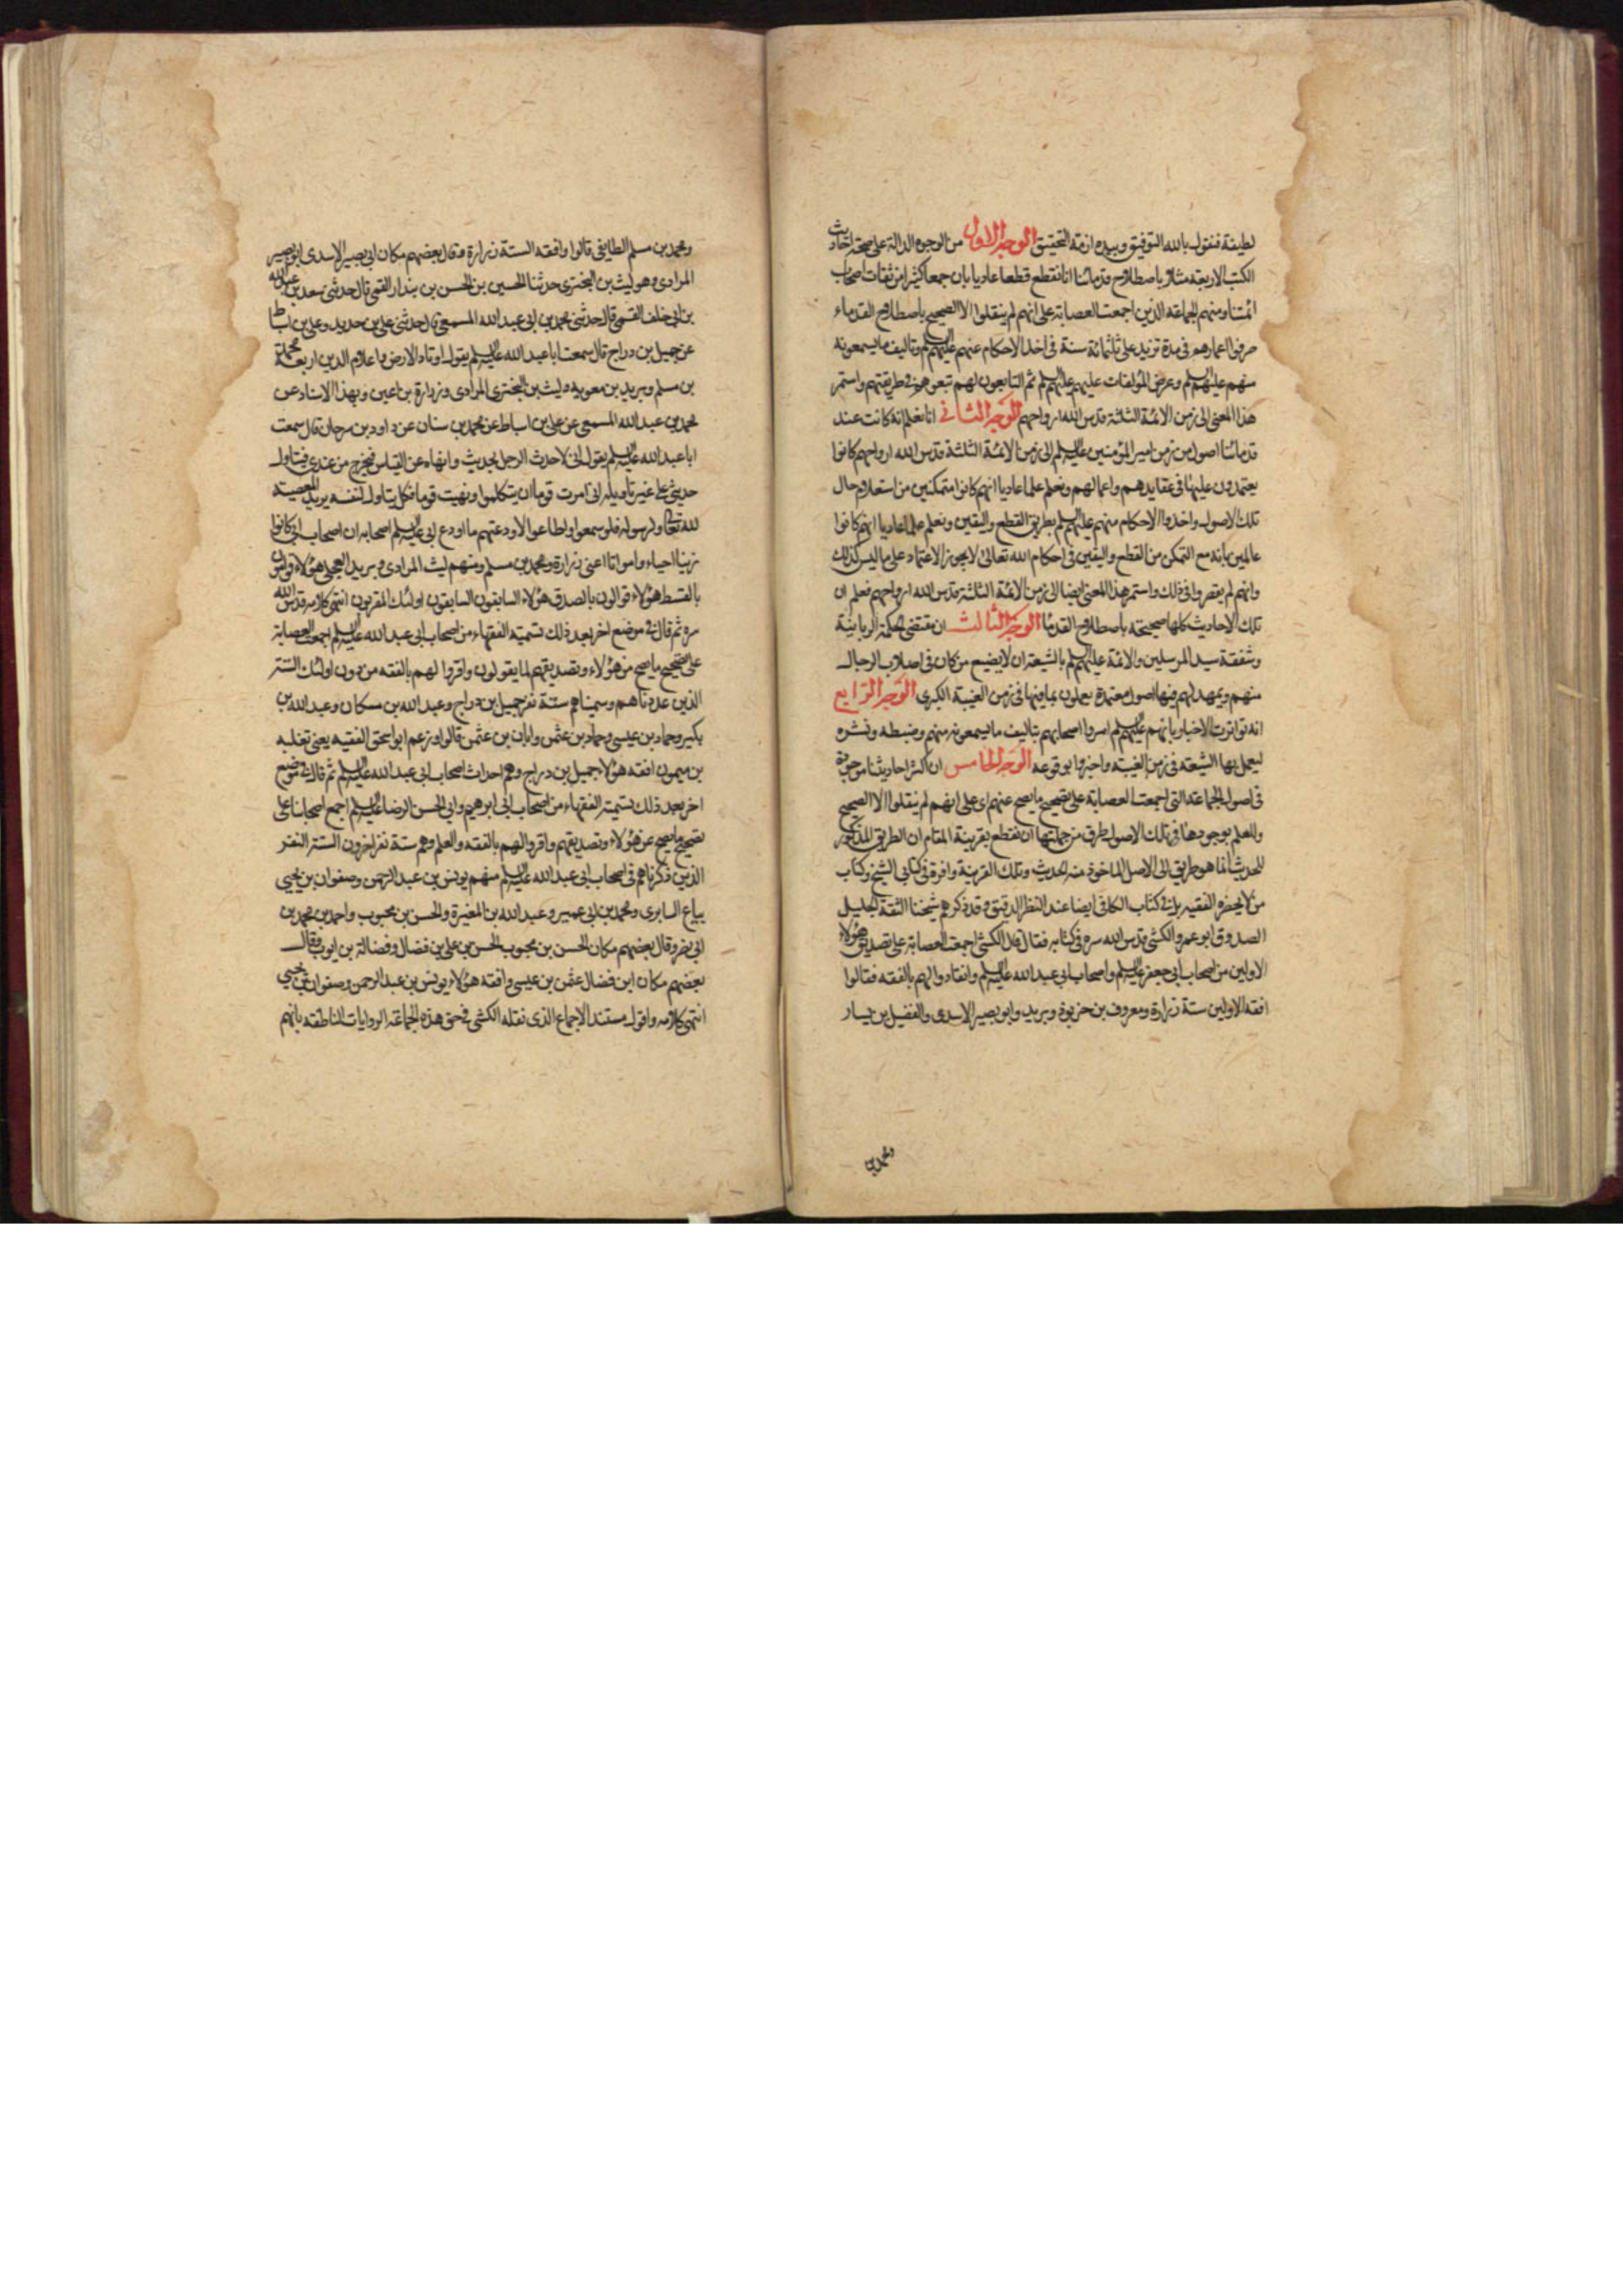 لطيفة فنقول بالله التوفيق وبيده ازمة التحقيق الوجه الاول من الوجوه الدالة على صحة احاديث
الكتب الاربعة مثلا باصطلاح قدمائنا انا نقطع قطعا عاديا بان جمعا كثيرا من ثقات اصحاب
ائمتنا ومنهم الجماعة الذين اجمعت العصابة على انهم لم ينقلوا الا الصحيح باصطلاح القدماء
صرفوا اعمارهم في مدة تزيد على ثلثمائة سنة في اخذ الاحكام عنهم عليهم السلم وتاليف ما يسمعونه
منهم عليهم السلم وعرض المؤلفات عليهم عليهم السلم ثم التابعون لهم تبعوهم في طريقتهم واستمر
هذا المعنى الى زمن الائمة الثلثة قدس الله ارواحهم الوجه الثاني انا نعلم انه كانت عند
قدمائنا اصول من زمن امير المؤمنين عليه السلم الى زمن الائمة الثلثة قدس الله ارواحهم كانوا
يعتمدون عليها في عقايدهم واعمالهم ونعلم علما عاديا انهم كانوا متمكنين من استعلام حال
تلك الاصول واخذوا الاحكام منهم عليهم السلم بطريق القطع واليقين ونعلم علما عاديا انهم كانوا
عالمين بانه مع التمكن من القطع واليقين في احكام الله تعالى لا يجوز الاعتماد على ما ليس كذلك
وانهم لم يقصروا في ذلك واستمر هذا المعنى ايضا الى زمن الائمة الثلثة قدس الله ارواحهم فعلم ان
تلك الاحاديث كلها صحيحة باصطلاح القدما الوجه الثالث ان مقتضى الحكمة الربانية
وشفقة سيد المرسلين والائمة عليهم السلم بالشيعة ان لا يضيع من كان في اصلاب الرجال
منهم ويمهد لهم فيها اصول معتمدة يعملون بما فيها في زمن الغيبة الكبرى الوجه الرابع
انه تواترت الاخبار بانهم عليهم السلم امروا اصحابهم بتاليف ما يسمعونه منهم وضبطه ونشره
ليعمل بها الشيعة في زمن الغيبة واخبروا بوقوعه الوجه الخامس ان اكثر احاديثنا موجودة
في اصول الجماعة التي اجمعت العصابة على تصحيح ما يصح عنهم اي على انهم لم ينقلوا الا الصحيح
والعلم بوجودها في تلك الاصول طرق من جملتها ان نقطع بقرينة المقام ان الطريق المذكور
للحديث انما هو طريق الى الاصل الماخوذ منه الحديث وتلك القرينة وافرة في كتابي الشيخ وكتاب
من لا يحضره الفقيه بل في كتاب الكافي ايضا عند النظر الدقيق وقد ذكرهم شيخنا الثقة الجليل
الصدوق ابو عمرو الكشي قدس الله سره في كتابه فقال قال الكشي اجمعت العصابة على تصديق هؤلاء
الاولين من اصحاب ابي جعفر عليه السلم واصحاب ابي عبد الله عليه السلم وانقادوا لهم بالفقه فقالوا
افقه الاولين ستة زرارة ومعروف بن خربوذ وبريد وابو بصير الاسدي والفضيل بن يسار
ومحمد بن
ومحمد بن مسلم الطايفي قالوا وافقه الستة زرارة وقال بعضهم مكان ابي بصير الاسدي ابو بصير
المرادي وهو ليث بن البختري حدثنا الحسين بن الحسن بن بندار القمي قال حدثني سعد بن عبد الله
بن ابي خلف القمي قال حدثني محمد بن ابي عبد الله المسمعي قال حدثني علي بن حديد وعلي بن اسباط
عن جميل بن دراج قال سمعت ابا عبد الله عليه السلم يقول اوتاد الارض واعلام الدين اربعة محمد
بن مسلم وبريد بن معوية وليث بن البختري المرادي وزرارة بن اعين وبهذا الاسناد عن
محمد بن عبد الله المسمعي عن علي بن اسباط عن محمد بن سنان عن داود بن سرحان قال سمعت
ابا عبد الله عليه السلم يقول اني لاحدث الرجل الحديث وانهاه عن القياس فيخرج من عندي فيتاول
حديثي على غير تاويله اني امرت قوما ان يتكلموا ونهيت قوما فكل يتاول لنفسه يريد المعصية
لله تعالى ولرسوله فلو سمعوا واطاعوا لاودعتهم ما اودع ابي عليه السلم اصحابه ان اصحاب ابي كانوا
زينا احياء وامواتا اعني زرارة ومحمد بن مسلم ومنهم ليث المرادي وبريد العجلي هؤلاء قوامون
بالقسط هؤلاء قوالون بالصدق هؤلاء السابقون السابقون اولئك المقربون انتهى كلامه قدس الله
سره ثم قال في موضع اخر بعد ذلك تسمية الفقهاء من اصحاب ابي عبد الله عليه السلم اجمعت العصابة
على تصحيح ما يصح من هؤلاء وتصديقهم لما يقولون واقروا لهم بالفقه من دون اولئك الستة
الذين عددناهم وسميناهم ستة نفر جميل بن دراج وعبد الله بن مسكان وعبد الله بن
بكير وحماد بن عيسى وحماد بن عثمن وابان بن عثمن قالوا وزعم ابو اسحق الفقيه يعني ثعلبه
بن ميمون افقه هؤلاء جميل بن دراج وهم احداث اصحاب ابي عبد الله عليه السلم ثم قال في موضع
اخر بعد ذلك تسمية الفقهاء من اصحاب ابي ابرهيم وابي الحسن الرضا عليه السلم اجمع اصحابنا على
تصحيح ما يصح عن هؤلاء وتصديقهم واقروا لهم بالفقه والعلم وهم ستة نفر اخرون الستة النفر
الذين ذكرناهم في اصحاب ابي عبد الله عليه السلم منهم يونس بن عبد الرحمن وصفوان بن يحيى
بياع السابري ومحمد بن ابي عمير وعبد الله بن المغيرة والحسن بن محبوب واحمد بن محمد بن
ابي نصر وقال بعضهم مكان الحسن بن محبوب الحسن بن علي بن فضال وفضالة بن ايوب وقال
بعضهم مكان ابن فضال عثمن بن عيسى وافقه هؤلاء يونس بن عبد الرحمن وصفوان بن يحيى
انتهى كلامه واقول مستند الاجماع الذي نقله الكشي في حق هذه الجماعة الروايات الناطقة بانهم